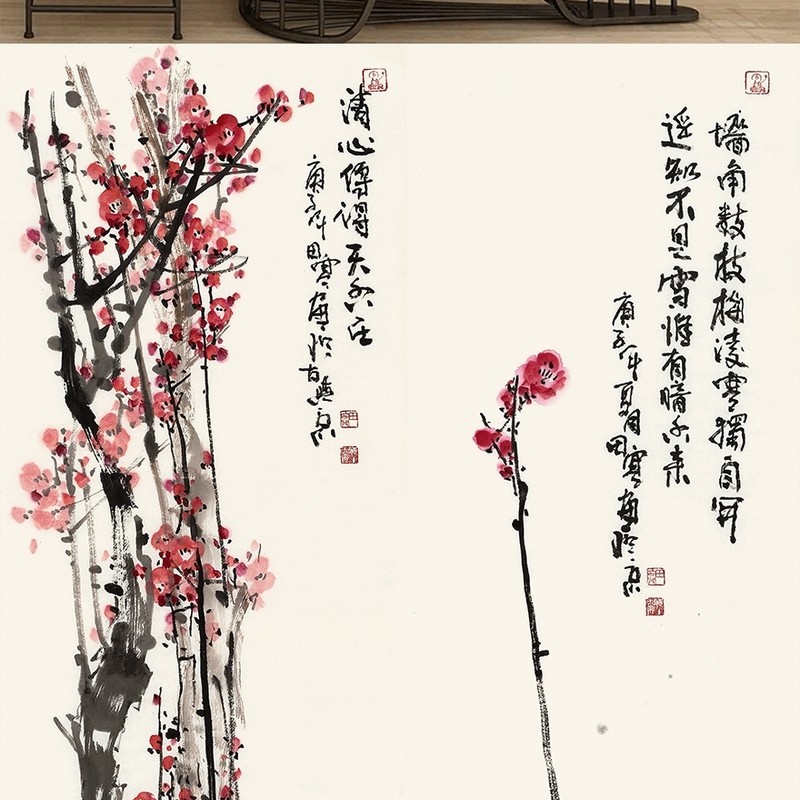 清心傳得天心在
庚子年田寒梅於古燕京
墻角數枝梅凌寒獨自開
遥知不是雪惟有暗香来
庚子年夏月田寒梅於京